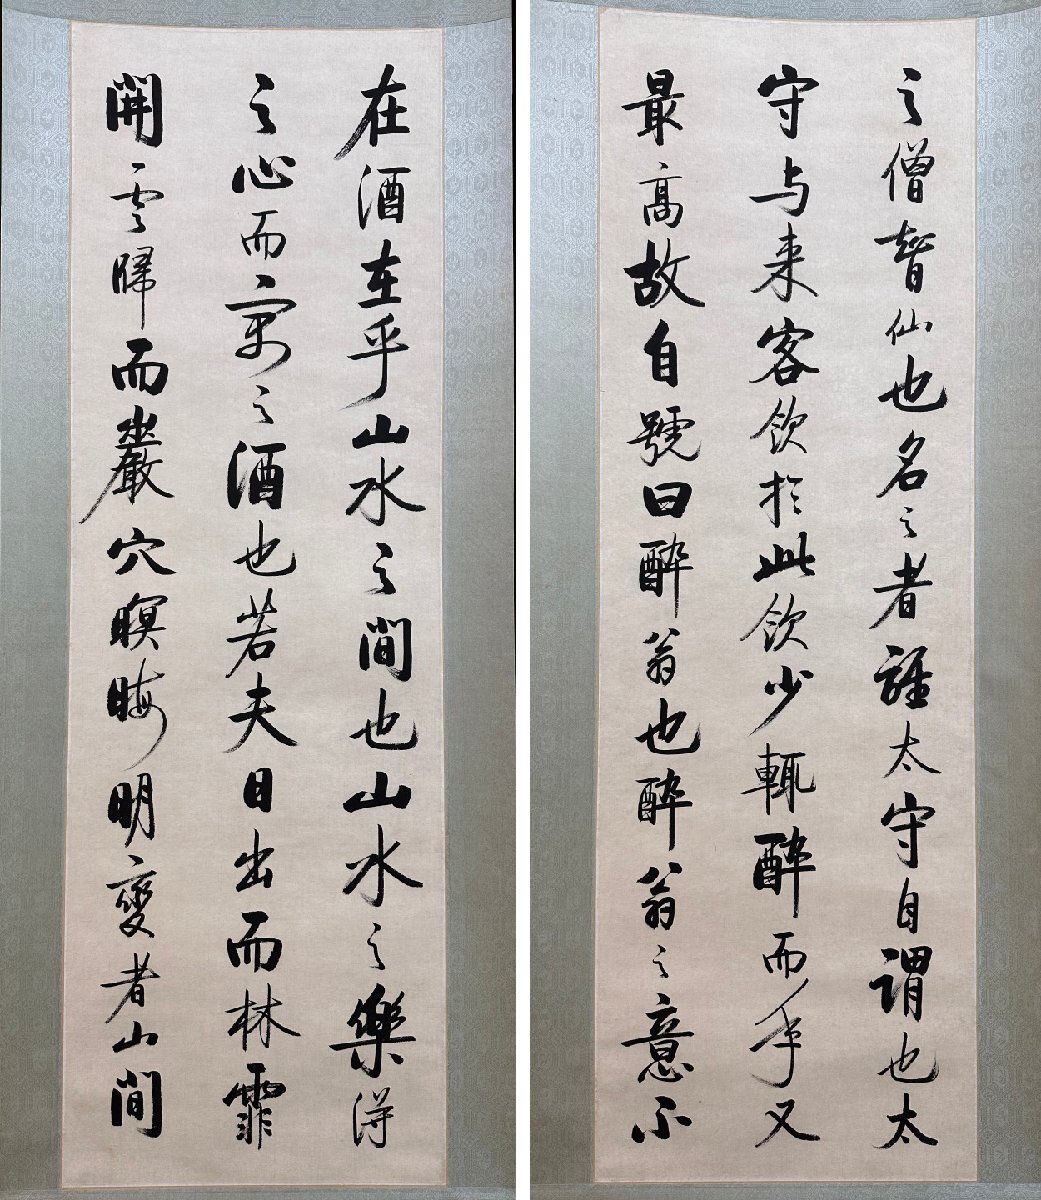 之僧智仙也名之者誰太守自謂也太
守与来客飲於此飲少輒醉而年又
最高故自號曰醉翁也醉翁之意不
在酒在乎山水之間也山水之樂得
之心而寓之酒也若夫日出而林霏
開雲歸而巖穴暝晦明變者山間